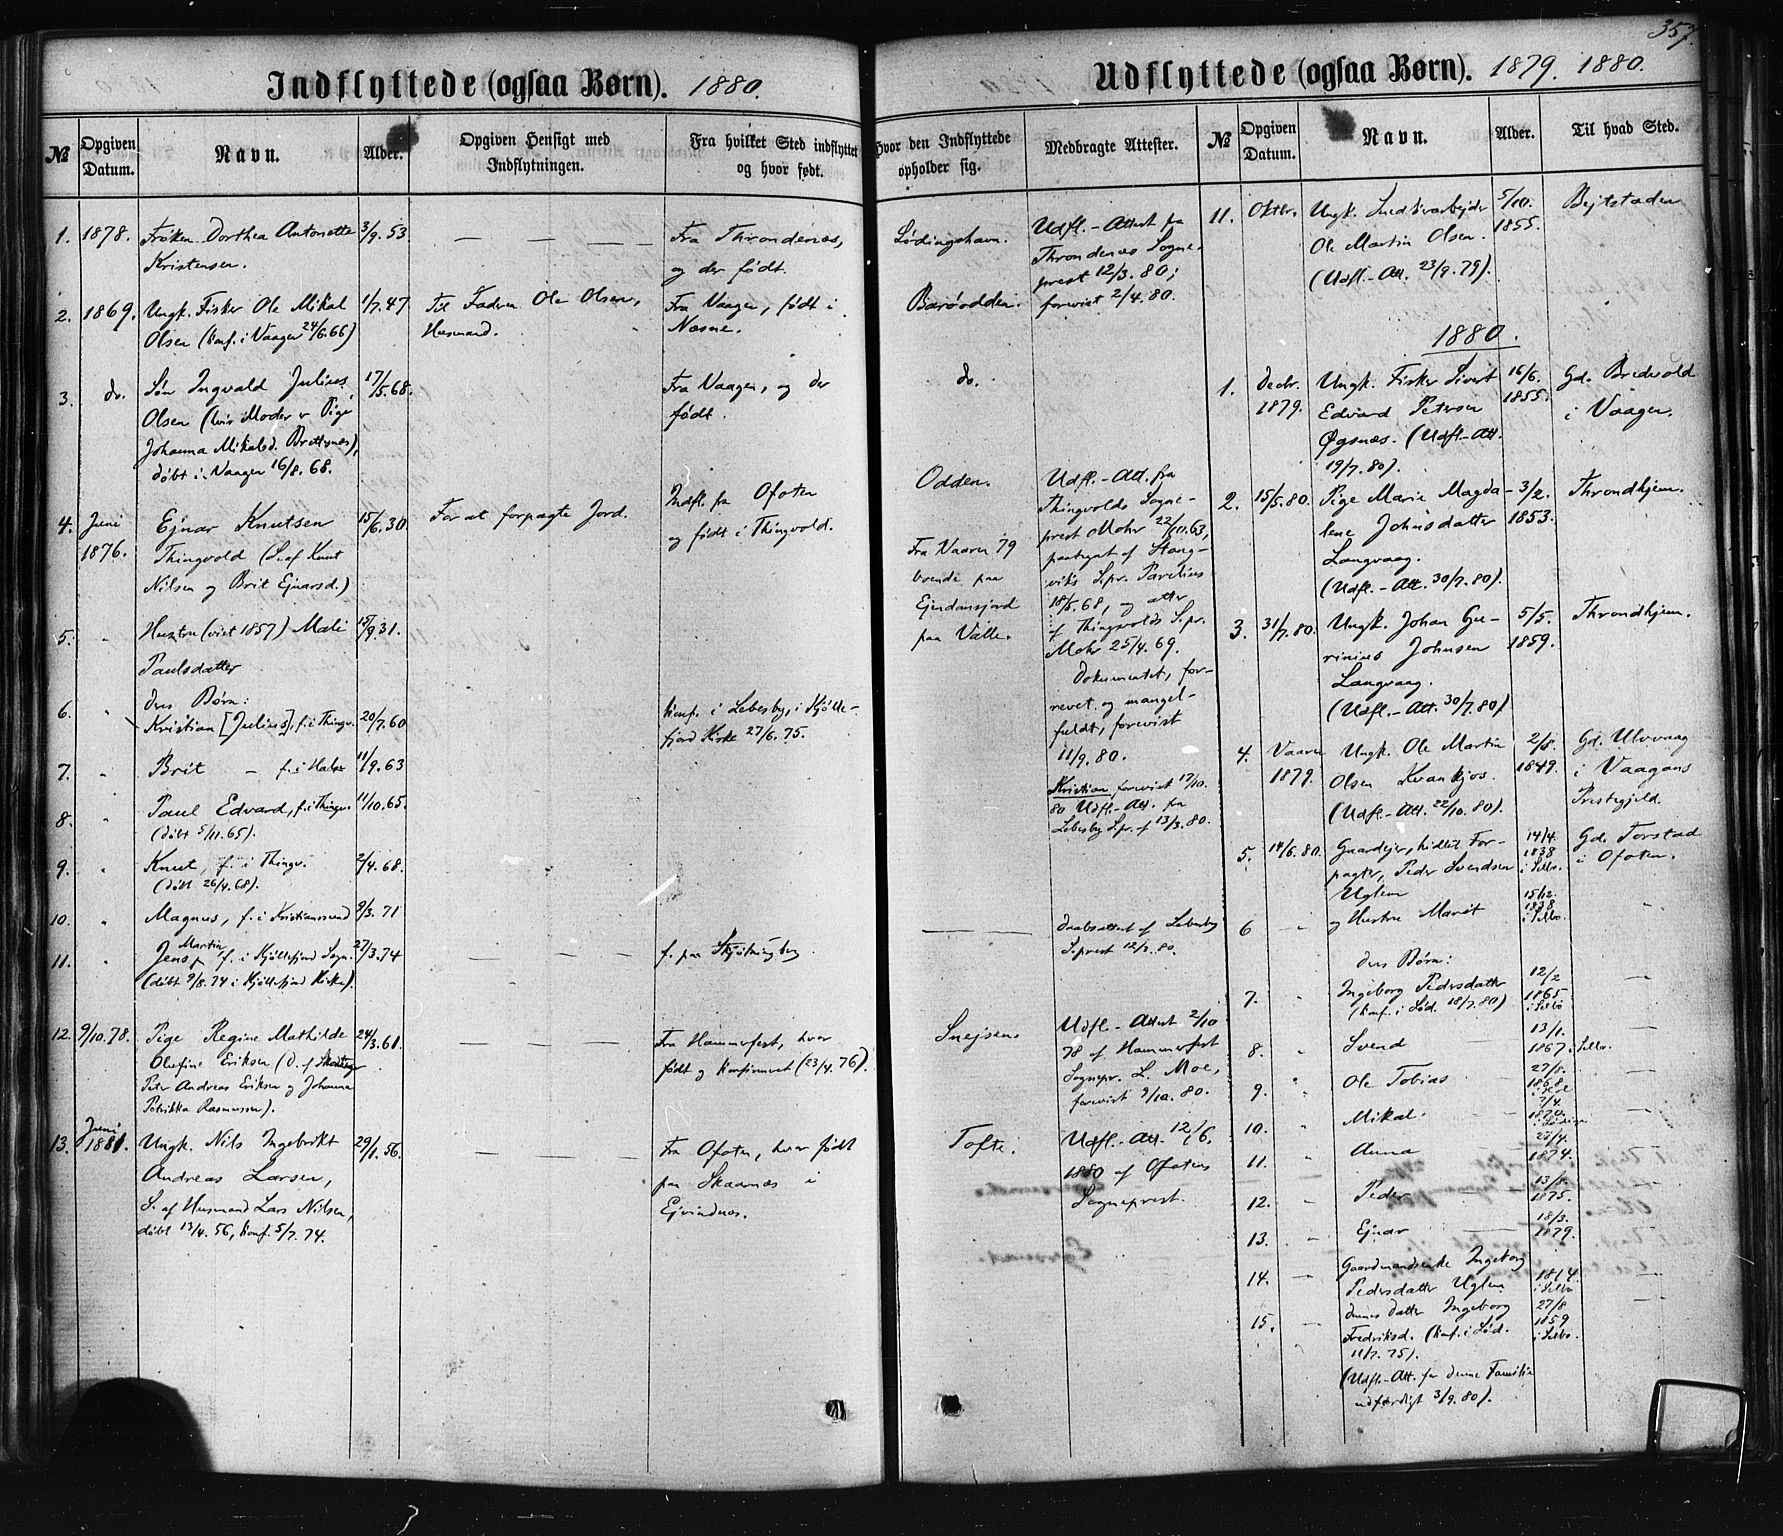 357.
Indflyttede (ogsaa Børn). 1880.
№
Opgiven Datum.
Navn.
Alder.
Opgiven Hensigt med Indflytningen.
Fra hvilket Sted indflyttet og hvor født.
Hvor den Indflyttede opholder sig.
Medbragte Attester.
1. 1878. Frøken Dorthea Antonette 3/9. 53 — — — — Fra Throndenæs, Lødingshavn. Udfl.-Attest fra
Kristensen. og der født. Throndenes Sogne-
prest 12/3. 80;
forevist 2/4. 80.
2. 1869. Ungk. Fisker Ole Mikal 1/7. 47. Til Faderen Ole Olsen, Fra Vaagen, født i Barøodden.
Olsen (konf. i Vaagen 24/6. 66) Husmand. Næsne.
3. do. Søn Ingvald Julius 17/5. 68. Fra Vaagen, og der do.
Olsen (hvis Moder er Pige født.
Johanna Mikalsd. Brettesnes),
døbt i Vaagen 16/8. 68.
4. Juni Ejnar Knutsen 15/6. 30. For at forpagte Jord. Indfl. fra Ofoten Odden. Udfl.-Att. fra
1876. Thingvold (S. af Knut og født i Thingvold. Thingvolds Sogne-
Nilsen og Brit Ejnarsd.) prest Mohr 22/10. 63,
Fra Vaaren 79 paategnet af Stang-
boende paa viks S.pr. Parelius
Ejendomsjord 18/5. 68, og atter
paa Valle. af Thingvolds S.pr.
Mohr 25/4. 69.
5. " Hustru (viet 1857) Mali 15/9. 31.
Paulsdatter
Dokumentet, for-
revet og mangel-
fuldt, forevist
11/9. 80.
6. " deres Børn:
Kristian [Julius], f. i Thingv. 20/7. 60 konf. i Lebesby, i Kjølle-
fjord Kirke 27/6. 75.
7. " Brit — f. i Halse 11/9. 63
Kristian forevist 17/10.
80 Udfl.-Att. fra
Lebesby S.pr. af 13/3. 80.
8. " Paul Edvard, f. i Thingv. 11/10. 65.
(døbt 5/11. 65).
9. " Knut, f. i Thingv. 2/4. 68.
(døbt 26/4. 68).
10. " Magnus, f. i Kristianssund 9/3. 71
11. " Jens Martin, f. i Kjøllefjord Sogn. 27/3. 74 — — — — f. paa Skjøtningberg — — — daabsattest af Lebesby
(døbt 9/8. 74 i Kjøllefjord Kirke). S.prest 12/3. 80.
12. 9/10. 78. Pige Regine Mathilde 24/3. 61. — — — — Fra Hammerfest, hvor Snejsen Udfl.-Attest 2/10
Olufine Eriksen (D. af født og konfirmeret (23/4. 76). 78 af Hammerfest
Peter Andreas Eriksen og Johanna Sognepr. L. Moe,
Petrikka Rasmussen). forevist 9/10. 80.
13. Juni
1880. Ungk. Nils Ingebrikt 29/1. 56. — — — — Fra Ofoten, hvor født Tofte. Udfl.-Att. 12/6.
Andreas Larsen, paa Skaanæs i 1880 af Ofotens
S. af Husmand Lars Nilsen, Ejvindnæs. Sogneprest.
døbt 13/4. 56, konf. 5/7. 74.
Udflyttede (ogsaa Børn). 1879. 1880.
№
Opgiven Datum.
Navn.
Alder.
Til hvad Sted.
11. Oktbr. Ungk. Snedkerarbejder 5/10. Bejtstaden
Ole Martin Olsen. 1855.
(Udfl.-Att. 23/9. 79).
1880.
1. Decbr. Ungk. Fisker Sivert 16/6. Gd. Bredvold
1879. Edvard Petersen 1855. i Vaagen.
Øgsnæs. (Udfl.-Att.
19/7. 80).
2. 15/5. 80. Pige Marie Magda- 3/2. Throndhjem.
lene Johnsdatter 1853.
Langvaag.
(Udfl.-Att. 30/7. 80).
3. 31/7. 80. Ungk. Johan Gu- 5/5. Throndhjem.
rinius Johnsen 1859.
Langvaag.
(Udfl.-Att. 30/7. 80)
4. Vaaren Ungk. Ole Martin 2/8. Gd. Ulvvaag
1879. Olsen Kvankjos. 1849. i Vaagans
(Udfl.-Att. 22/10. 80). Prestegjeld.
5. 14/6. 80. Gaardejer, hidtil For- 14/4. 1838 i Selbo. Gd. Forstad
pagter, Peder Svendsen i Ofoten.
Uglem
6 — " og Hustru Marit 15/12. 1838 i Selbo. "
deres Børn:
7. " Ingeborg Pedersdatter 12/2 1865 i Selbo —
(konf. i Lød. 18/7. 80)
8. " Svend — 13/1. 1867 i Selbo. —
9. " Ole Tobias 27/8. 1868 —
10. " Mikal. 7/4. 1870.
11. " Anna 25/4. 1874.
12. " Peder 13/8. 1875.
13. " Ejnar — 18/3. 1879.
14. — Gaardmandsenke Ingeborg
Pedersdatter Uglem 1814 i Selbo —
15. — dennes datter Ingeborg 27/8 1859 i Selbo. —
Fredriksd. (konf. i Lød.
11/7. 75).
(Udfl.-Att. for denne Familie
udfærdigt 3/9. 80).